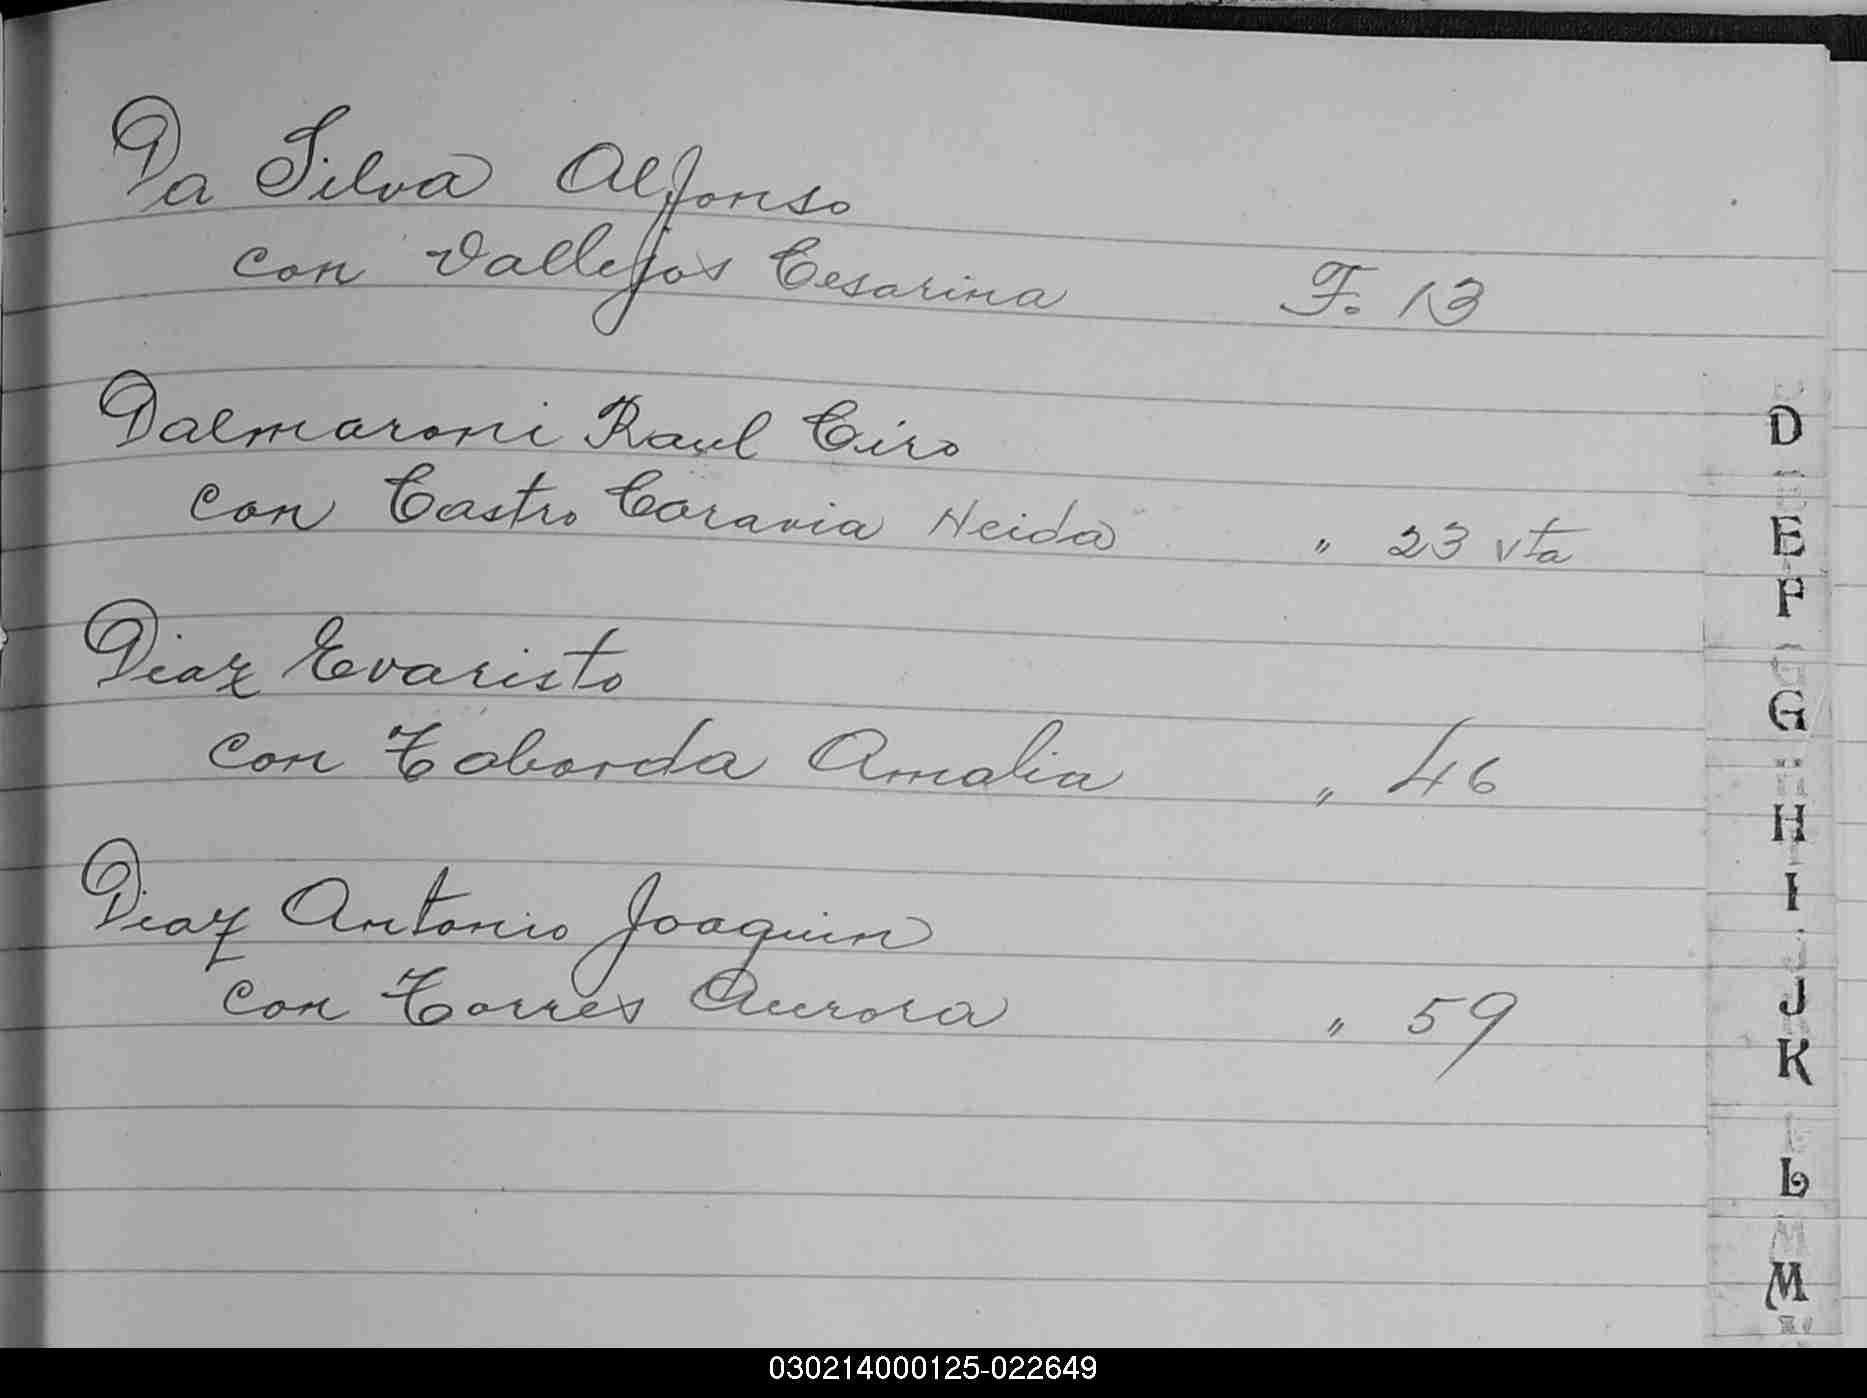 Da Silva Alfonso
con Vallejos Cesarina F. 13
Dalmaroni Raul Ciro
con Castro Caravia Neida " 23 vta
Diaz Evaristo
con Taborda Amalia " 46
Diaz Antonio Joaquin
con Torres Aurora " 59
D
E
F
G
H
I
J
K
L
M
030214000125-022649